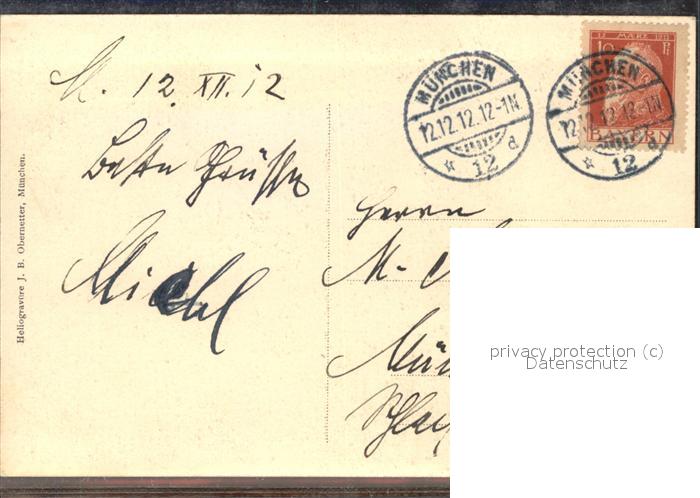 M. 12. XII. 12
Beste Grüsse
Michl
Herrn
M-
Mün
Heliogravüre J. B. Obernetter, München.
MÜNCHEN
12.12.12.12-1N.
* 12 d
MÜNCHEN
12.12.12.12-1N.
* 12 d
12 MÄRZ 1911
10 Pf
BAYERN
privacy protection (c)
Datenschutz